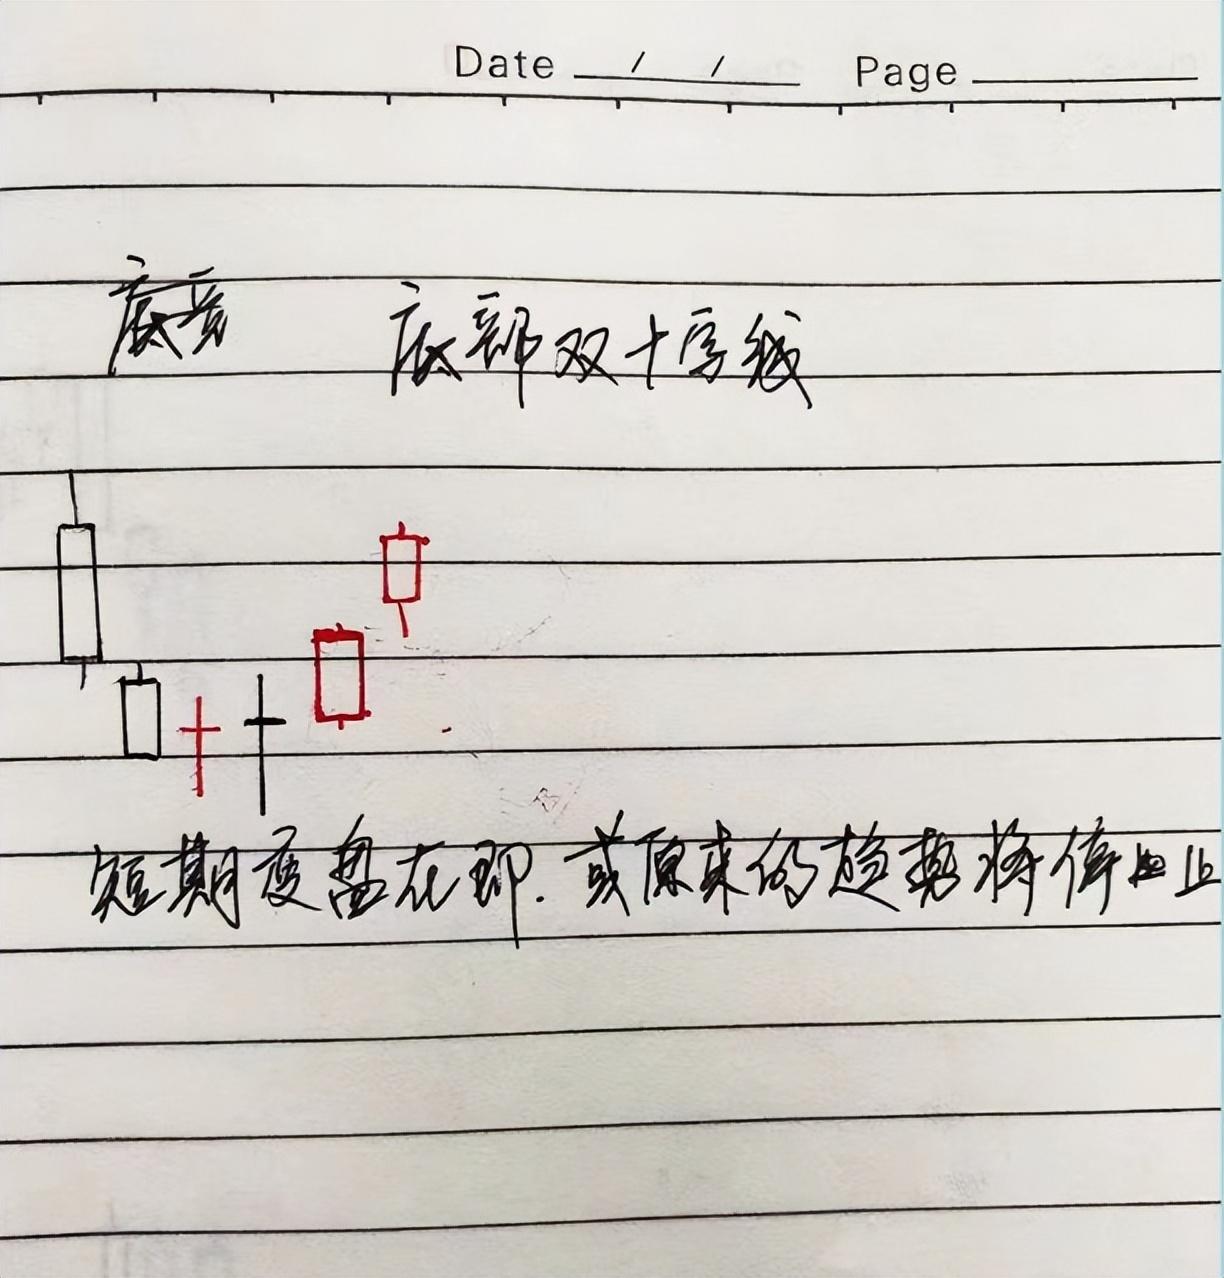 Date / / Page
底部双十字线
短期变盘在即.或原来的趋势将停止